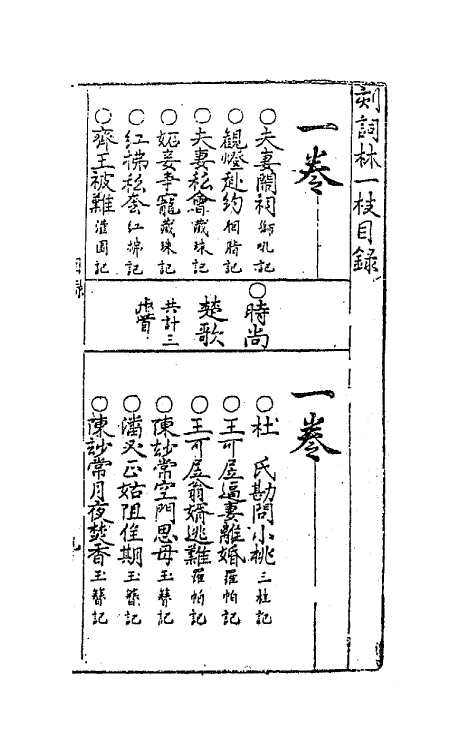 刻詞林一枝目錄
一卷
○夫妻鬧祠 獅吼記
○觀燈赴約 胭脂記
○夫妻私會 藏珠記
○妬妾爭寵 藏珠記
○紅拂私奔 紅拂記
○齊王被難 灌園記
○時尚
楚歌
共計三
一卷
○杜氏勘問小桃 三桂記
○王可居逼妻離婚 羅帕記
○王可居翁婿逃難 羅帕記
○陳玅常空門思母 玉簪記
○潘必正姑阻佳期 玉簪記
○陳玅常月夜焚香 玉簪記